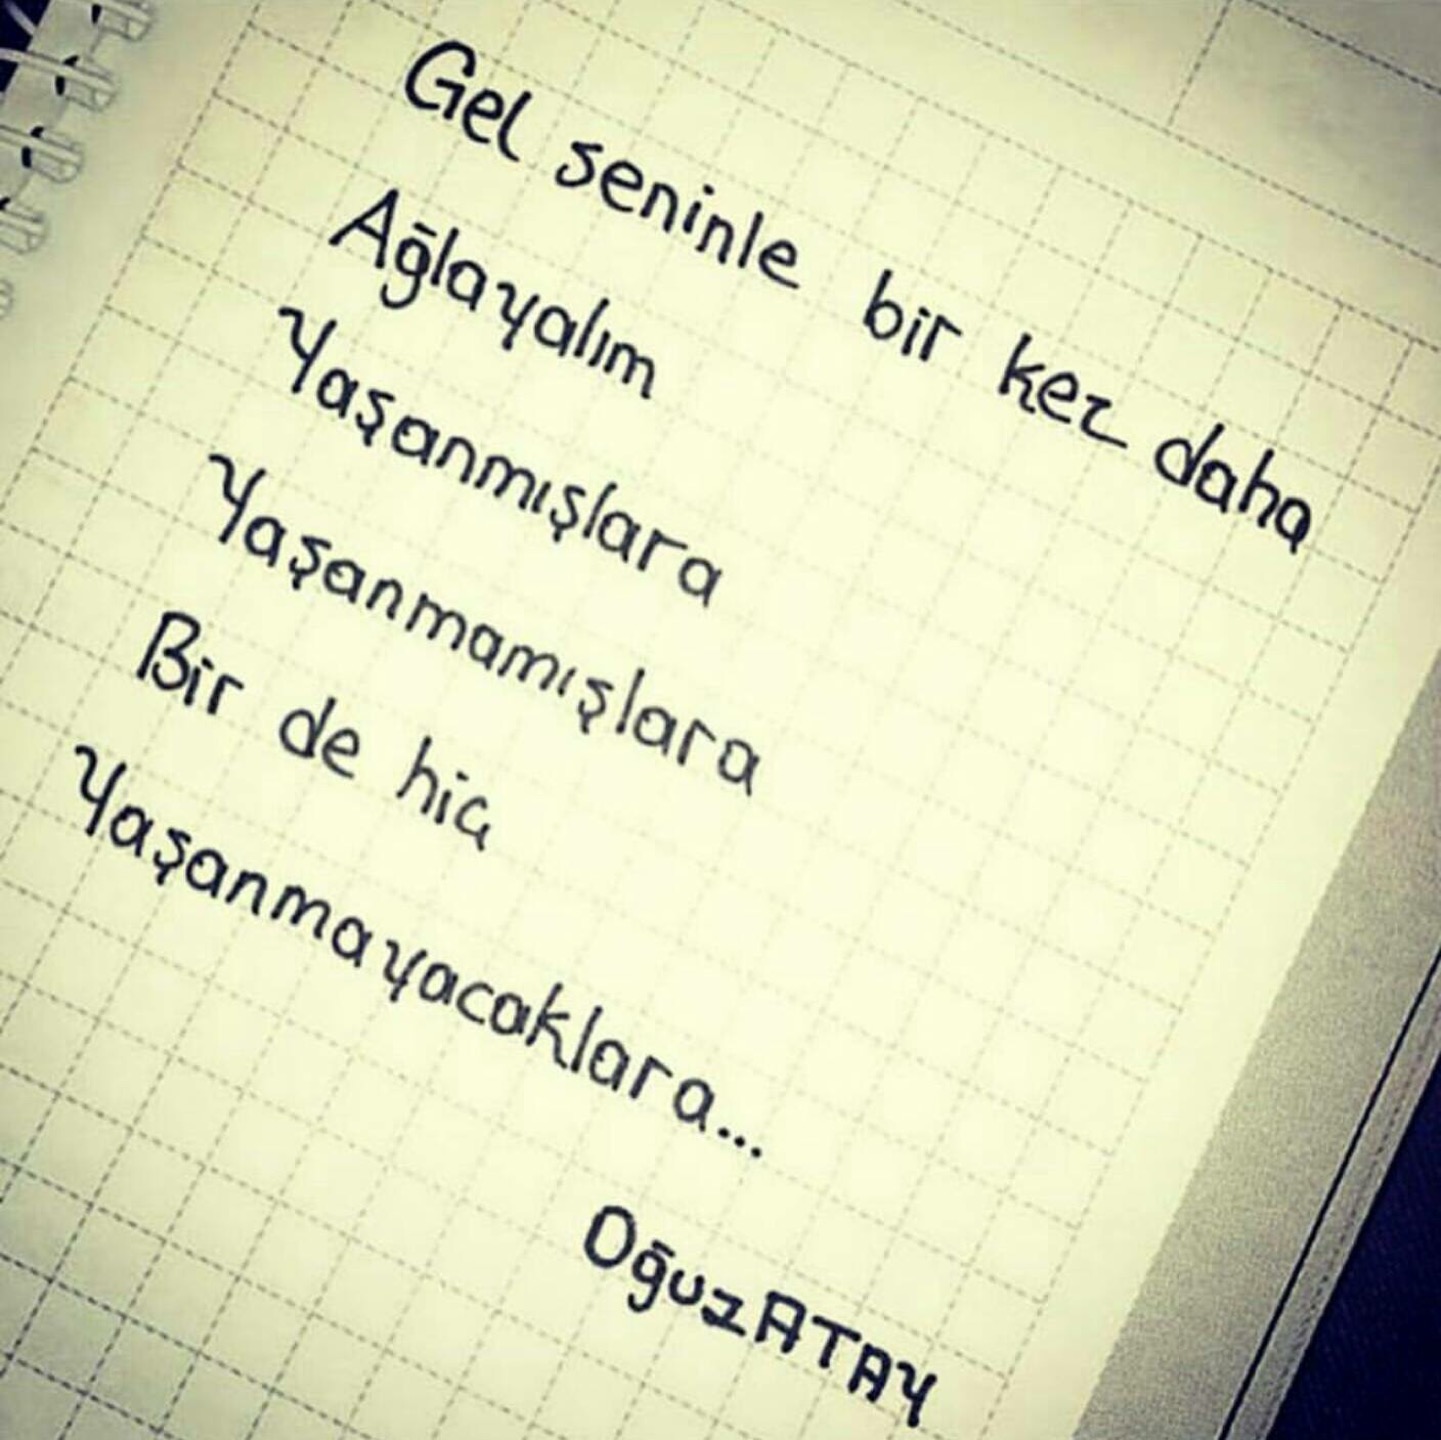 Gel seninle bir kez daha
Ağlayalım
Yaşanmışlara
Yaşanmamışlara
Bir de hiç
Yaşanmayacaklara...
Oğuz ATAY